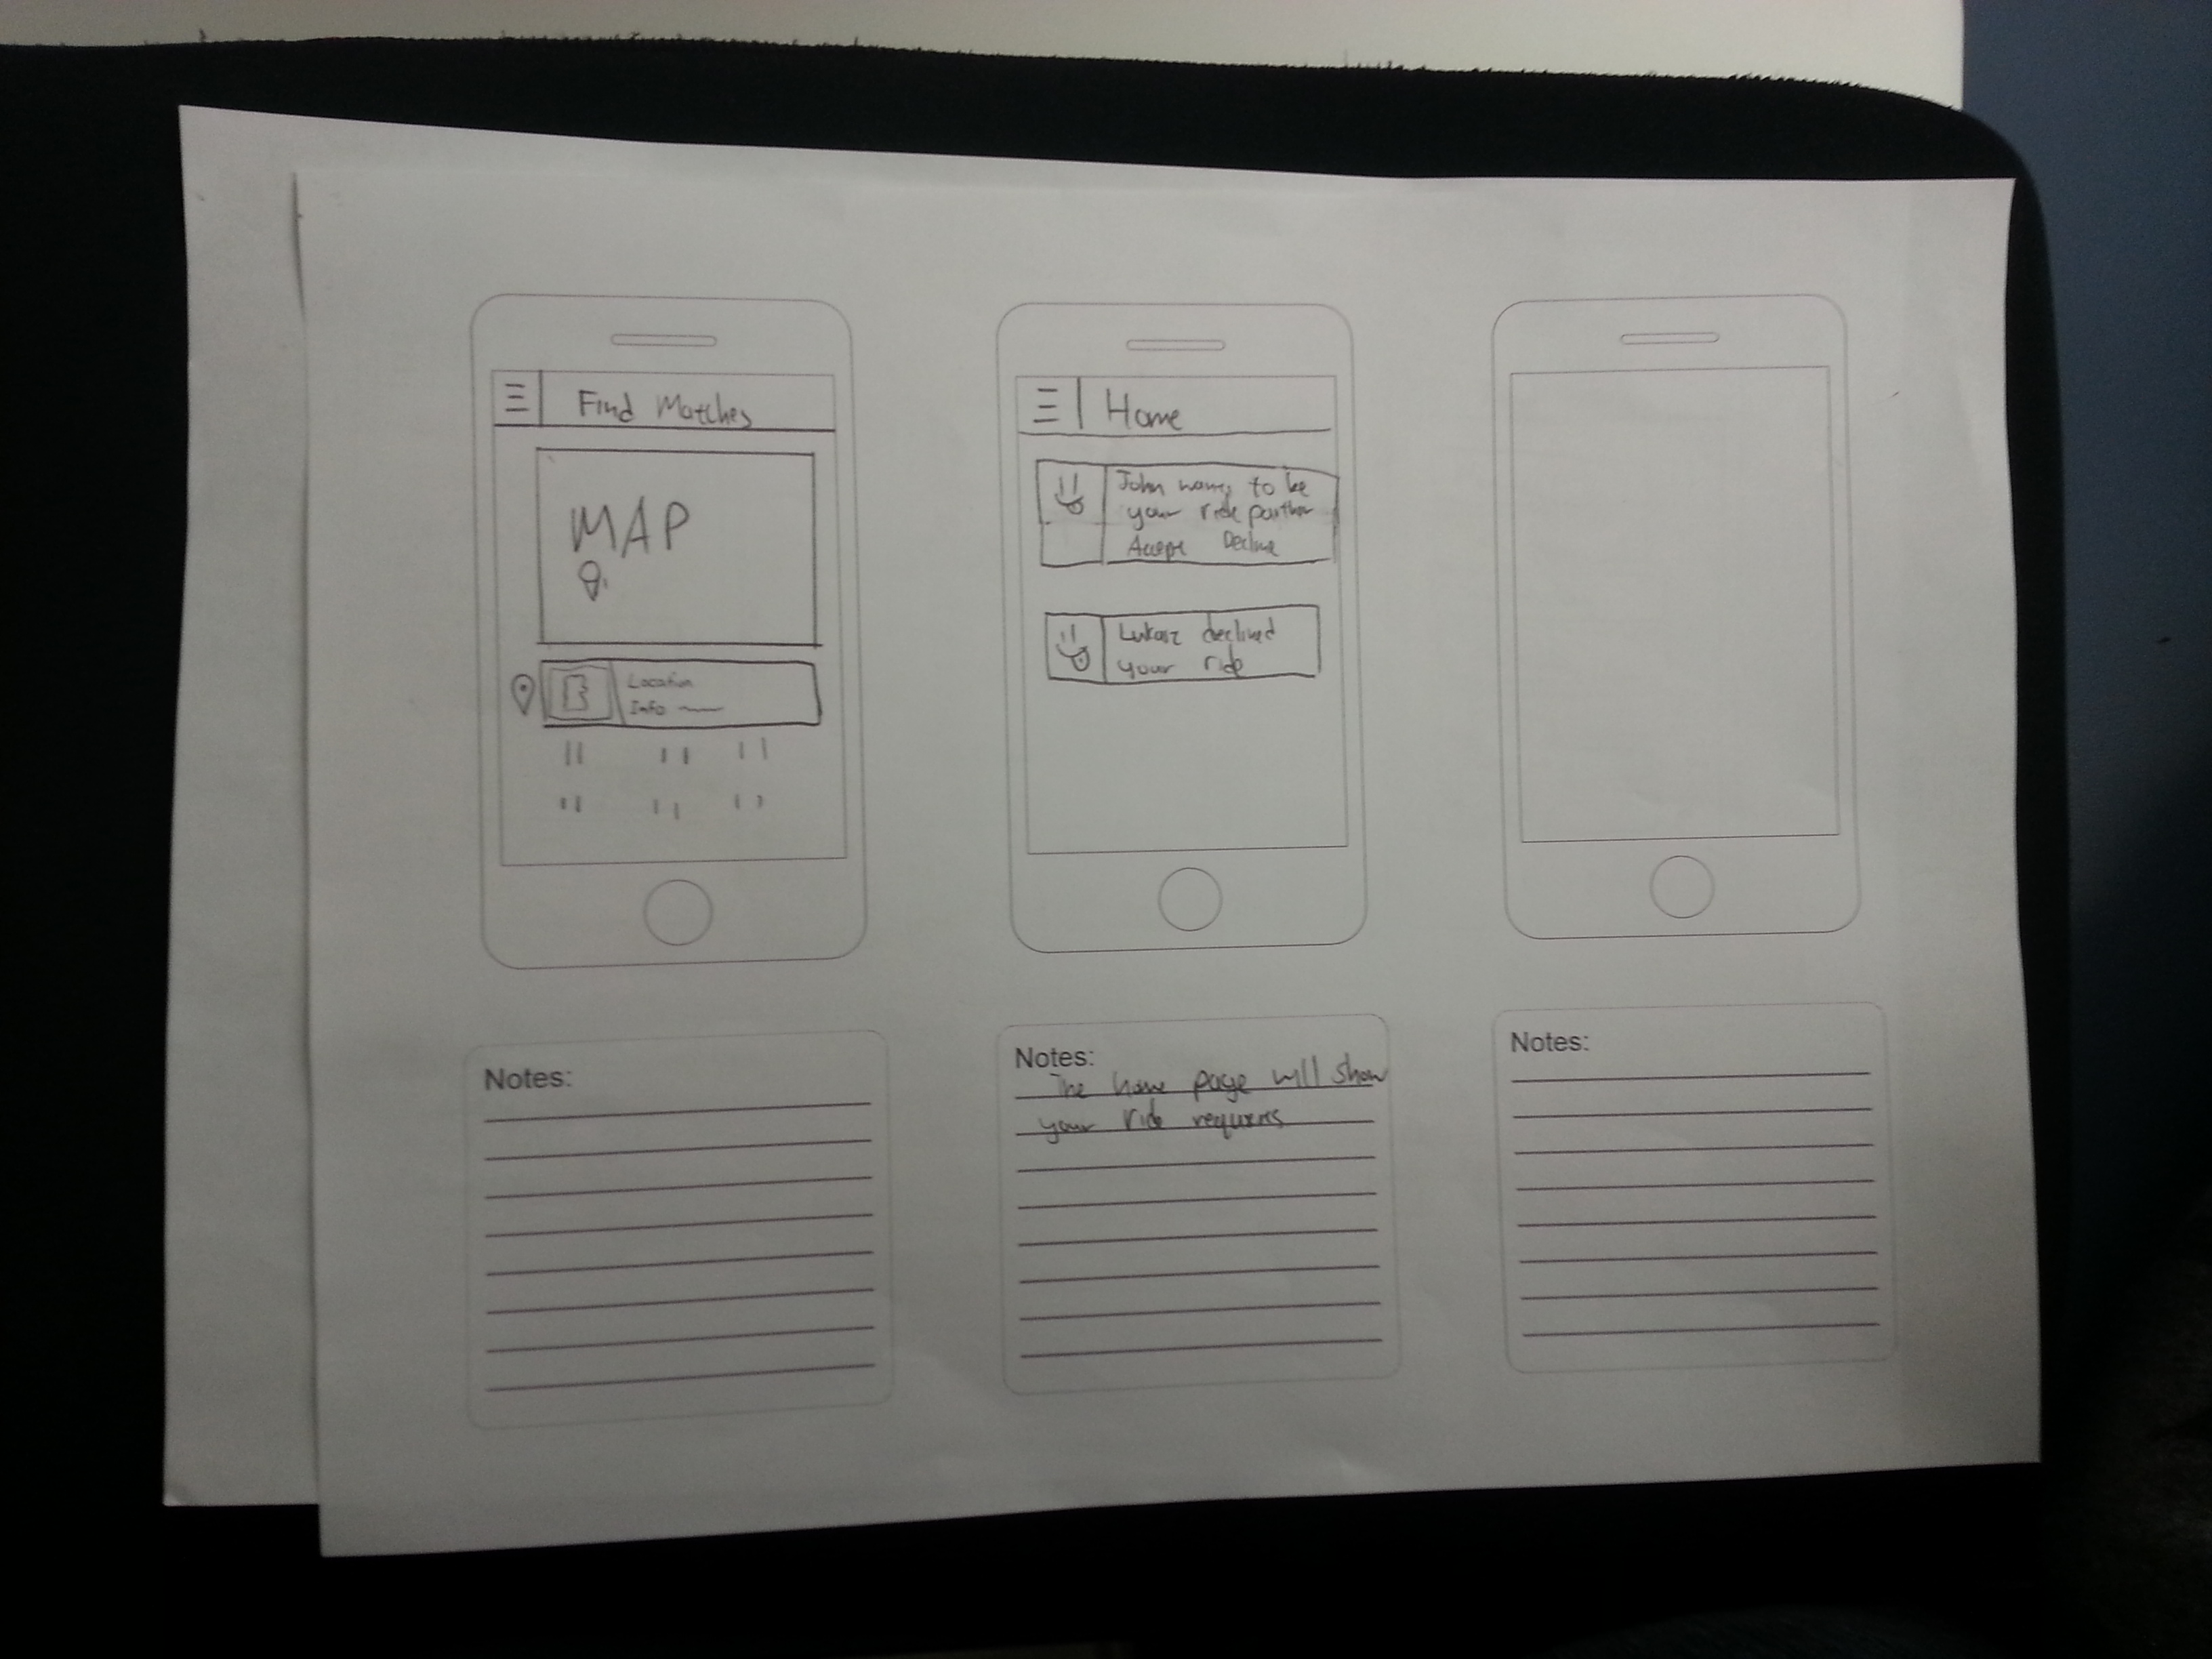 Find Matches
MAP
Location
Info
Notes:
Home
John wants to be
your ride partner
Accept Decline
Lukasz declined
your ride
Notes:
The home page will show
your ride requests
Notes: